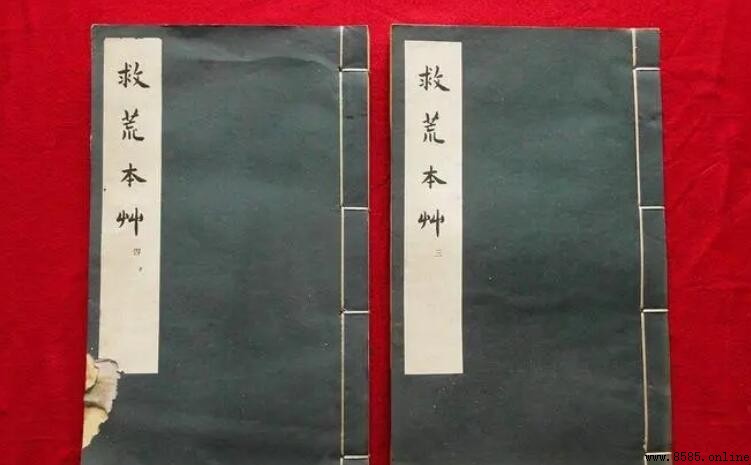 救荒本艸
四
救荒本艸
三
www.8585.online